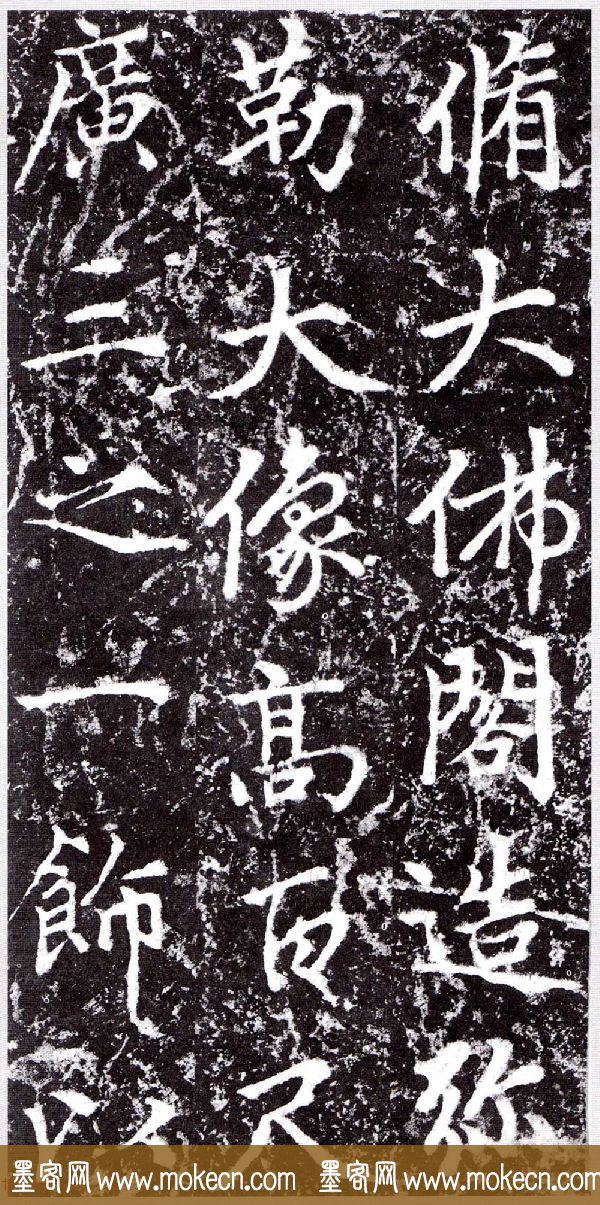 脩大佛閣造弥
勒大像高百尺
廣三之一飾以
墨客网 www.mokecn.com 墨客网 www.mokecn.com